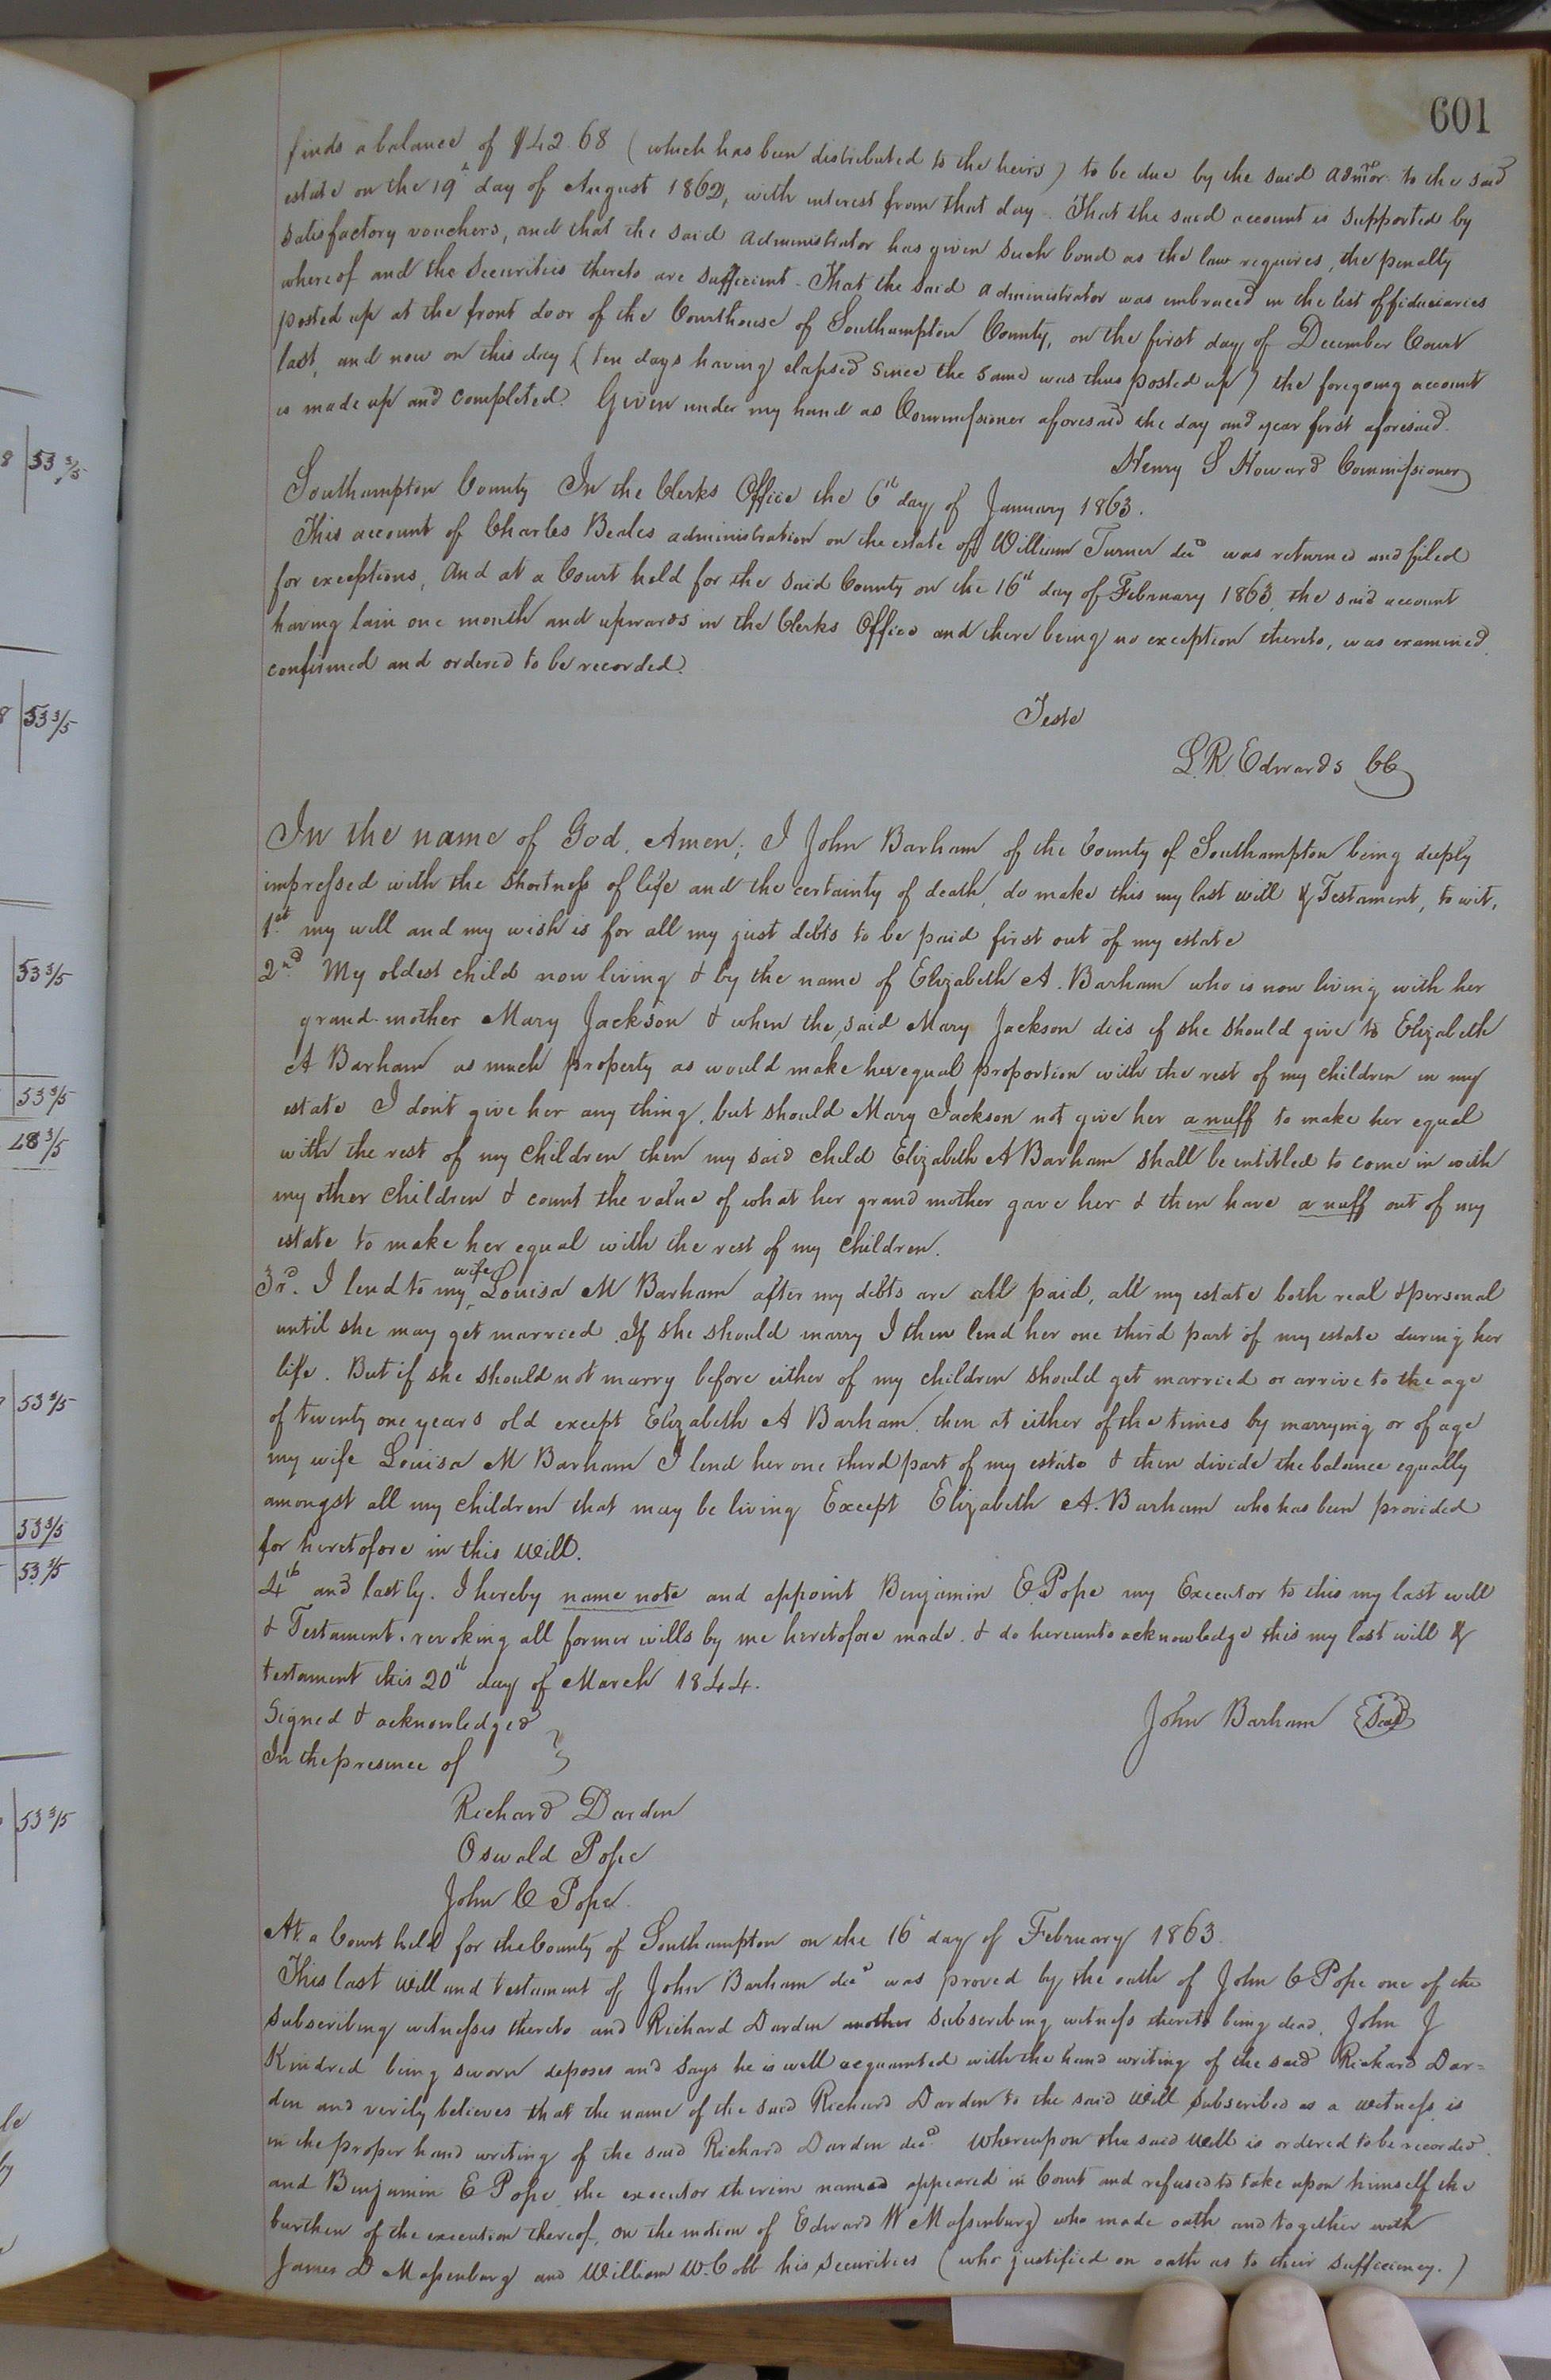 601
finds a balance of $42.68 (which has been distributed to the heirs) to be due by the said admor. to the said
estate on the 19th day of August 1862, with interest from that day. That the said account is supported by
satisfactory vouchers, and that the said administrator has given such bond as the law requires, the penalty
whereof and the securities thereto are sufficient. That the said administrator was embraced in the list of fiduciaries
posted up at the front door of the Courthouse of Southampton County, on the first day of December Court
last, and now on this day (ten days having elapsed since the same was thus posted up) the foregoing account
is made up and completed. Given under my hand as Commissioner aforesaid the day and year first aforesaid.
Henry S Howard Commissioner
Southampton County In the Clerks Office the 6th day of January 1863.
This account of Charles Beales administration on the estate of William Turner decd was returned and filed
for exceptions, And at a Court held for the said County on the 16th day of February 1863, the said account
having lain one month and upwards in the Clerks Office and there being no exception thereto, was examined
confirmed and ordered to be recorded.
Teste
L.R. Edwards CC
In the name of God, Amen; I John Barham of the County of Southampton being deeply
impressed with the shortness of life and the certainty of death, do make this my last will & Testament, to wit,
1st my will and my wish is for all my just debts to be paid first out of my estate
2nd My oldest child now living & by the name of Elizabeth A. Barham who is now living with her
grand-mother Mary Jackson & when the said Mary Jackson dies if she should give to Elizabeth
A Barham as much property as would make her equal proportion with the rest of my children in my
estate I dont give her any thing, but should Mary Jackson not give her a nuff to make her equal
with the rest of my children then my said child Elizabeth A Barham shall be intitled to come in with
my other children & count the value of what her grand mother gave her & then have a nuff out of my
estate to make her equal with the rest of my children.
3rd. I lend to my wife Louisa M Barham after my debts are all paid, all my estate both real & personal
until she may get married. If she should marry I then lend her one third part of my estate during her
life. But if she should not marry before either of my children should get married or arrive to the age
of twenty one years old except Elizabeth A Barham, then at either of the times by marrying or of age
my wife Louisa M Barham I lend her one third part of my estate & then divide the balance equally
amongst all my children that may be living Except Elizabeth A. Barham who has been provided
for heretofore in this will.
4th and lastly. I hereby name note and appoint Benjamin E. Pope my Executor to this my last will
& Testament. revoking all former wills by me heretofore made. & do hereunto acknowledge this my last will &
testament this 20th day of March 1844.
Signed & acknowledged
In the presence of
John Barham Seal
Richard Darden
Oswald Pope
John C Pope.
At a Court held for the County of Southampton on the 16 day of February 1863.
This last will and testament of John Barham decd was proved by the oath of John C Pope one of the
subscribing witnesses thereto and Richard Darden another subscribing witness thereto being dead, John J
Kindred being sworn deposes and says he is well acquainted with the hand writing of the said Richard Dar=
den and verily believes that the name of the said Richard Darden to the said will subscribed as a witness is
in the proper hand writing of the said Richard Darden decd. Whereupon the said will is ordered to be recorded.
and Benjamin E Pope the executor therein named appeared in Court and refused to take upon himself the
burthen of the execution thereof, on the motion of Edward W Massenburg who made oath and together with
James D Massenburg and William W. Cobb his securities (who justified on oath as to their sufficiency.)
8 53 3/5
8 53 3/5
53 3/5
53 3/5
28 3/5
53 3/5
53 3/5
53 3/5
53 3/5